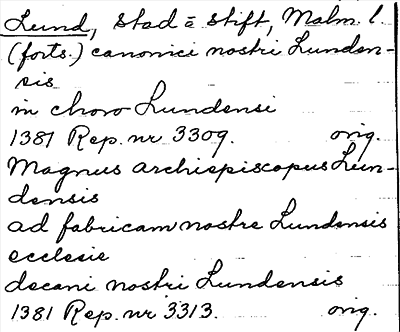 Lund, stad o stift, Malm. l.
(forts.) canonici nostri Lunden-
sis
in choro Lundensi
1381 Rep. nr 3309. orig.
Magnus archiepiscopus Lun-
densis
ad fabricam nostre Lundensis
ecclesie
decani nostri Lundensis
1381 Rep. nr 3313. orig.